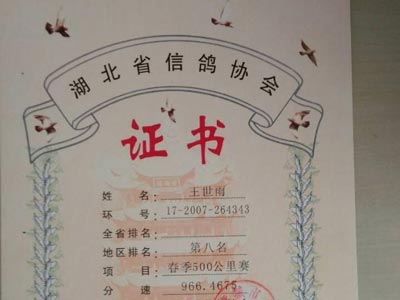 湖北省信鸽协会
证书
姓名: 王世雨
环号: 17-2007-264343
全省排名:
地区排名: 第八名
项目: 春季500公里赛
分速 966.4675